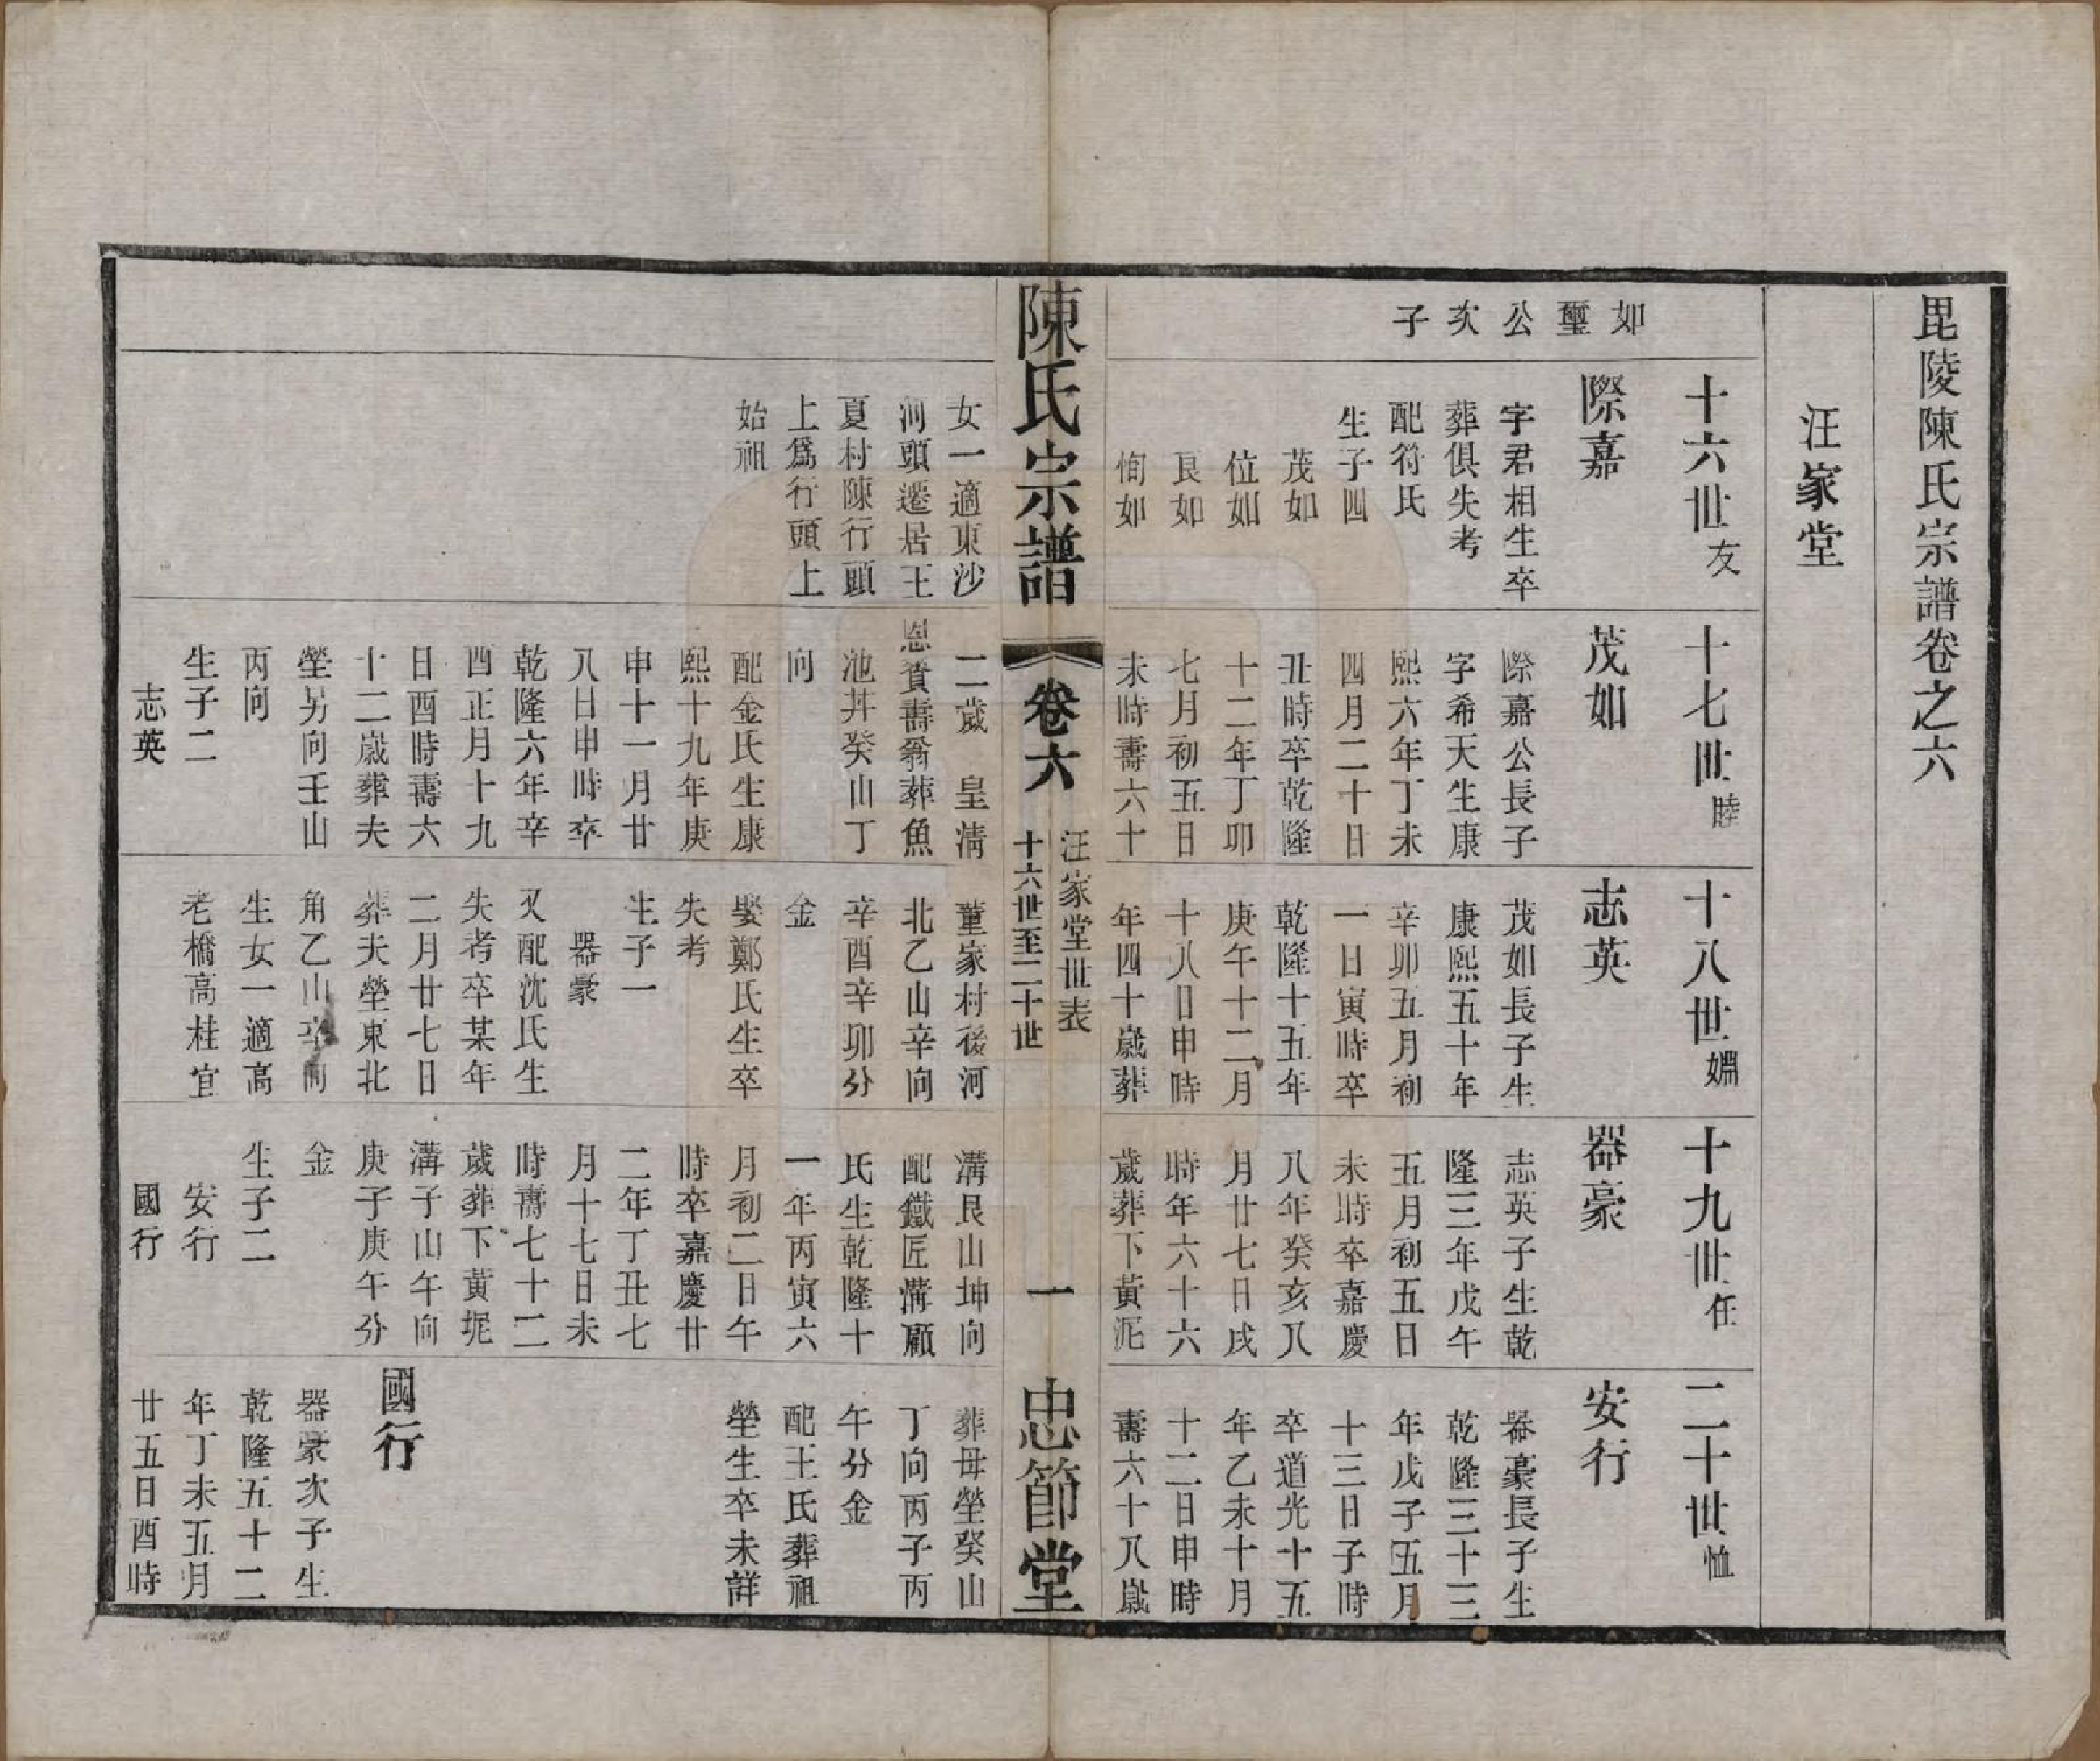 毘陵陳氏宗譜卷之六
汪家堂
如璽公次子
十六世友
際嘉
字君相生卒
葬俱失考
配符氏
生子四
茂如
位如
良如
恂如
十七世睦
茂如
際嘉公長子
字希天生康
熙六年丁未
四月二十日
丑時卒乾隆
十二年丁卯
七月初五日
未時壽六十
十八世婣
志英
茂如長子生
康熙五十年
辛卯五月初
一日寅時卒
乾隆十五年
庚午十二月
十八日申時
年四十歲葬
十九世任
器豪
志英子生乾
隆三年戊午
五月初五日
未時卒嘉慶
八年癸亥八
月廿七日戌
時年六十六
歲葬下黃泥
二十世恤
安行
器豪長子生
乾隆三十三
年戊子五月
十三日子時
卒道光十五
年乙未十月
十二日申時
壽六十八歲
陳氏宗譜
卷六
汪家堂世表
十六世至二十世
一
忠節堂
女一適東沙
河頭遷居王
夏村陳行頭
上爲行頭上
始祖
二歲 皇清
恩賚壽翁葬魚
池丼癸山丁
向
配金氏生康
熙十九年庚
申十一月廿
八日申時卒
乾隆六年辛
酉正月十九
日酉時壽六
十二歲葬夫
塋另向壬山
丙向
生子二
志英
董家村後河
北乙山辛向
辛酉辛卯分
金
娶鄭氏生卒
失考
生子一
器豪
又配沈氏生
失考卒某年
二月廿七日
葬夫塋東北
角乙山辛向
生女一適高
老橋高桂宜
溝艮山坤向
配鐵匠溝顧
氏生乾隆十
一年丙寅六
月初二日午
時卒嘉慶廿
二年丁丑七
月十七日未
時壽七十二
歲葬下黃坭
溝子山午向
庚子庚午分
金
生子二
安行
國行
葬母塋癸山
丁向丙子丙
午分金
配王氏葬祖
塋生卒未詳
國行
器豪次子生
乾隆五十二
年丁未五月
廿五日酉時